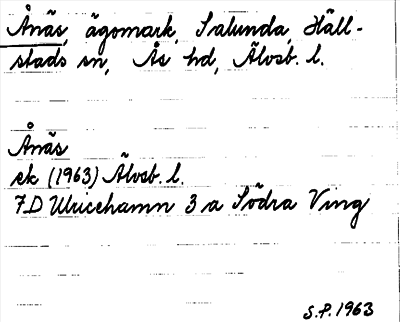 Ånäs, ägomark, Salunda, Häll-
stads sn, Ås hd, Älvsb. l.
Ånäs
ek (1963) Älvsb. l.
7D Ulricehamn 3 a Södra Ving
S.P. 1963